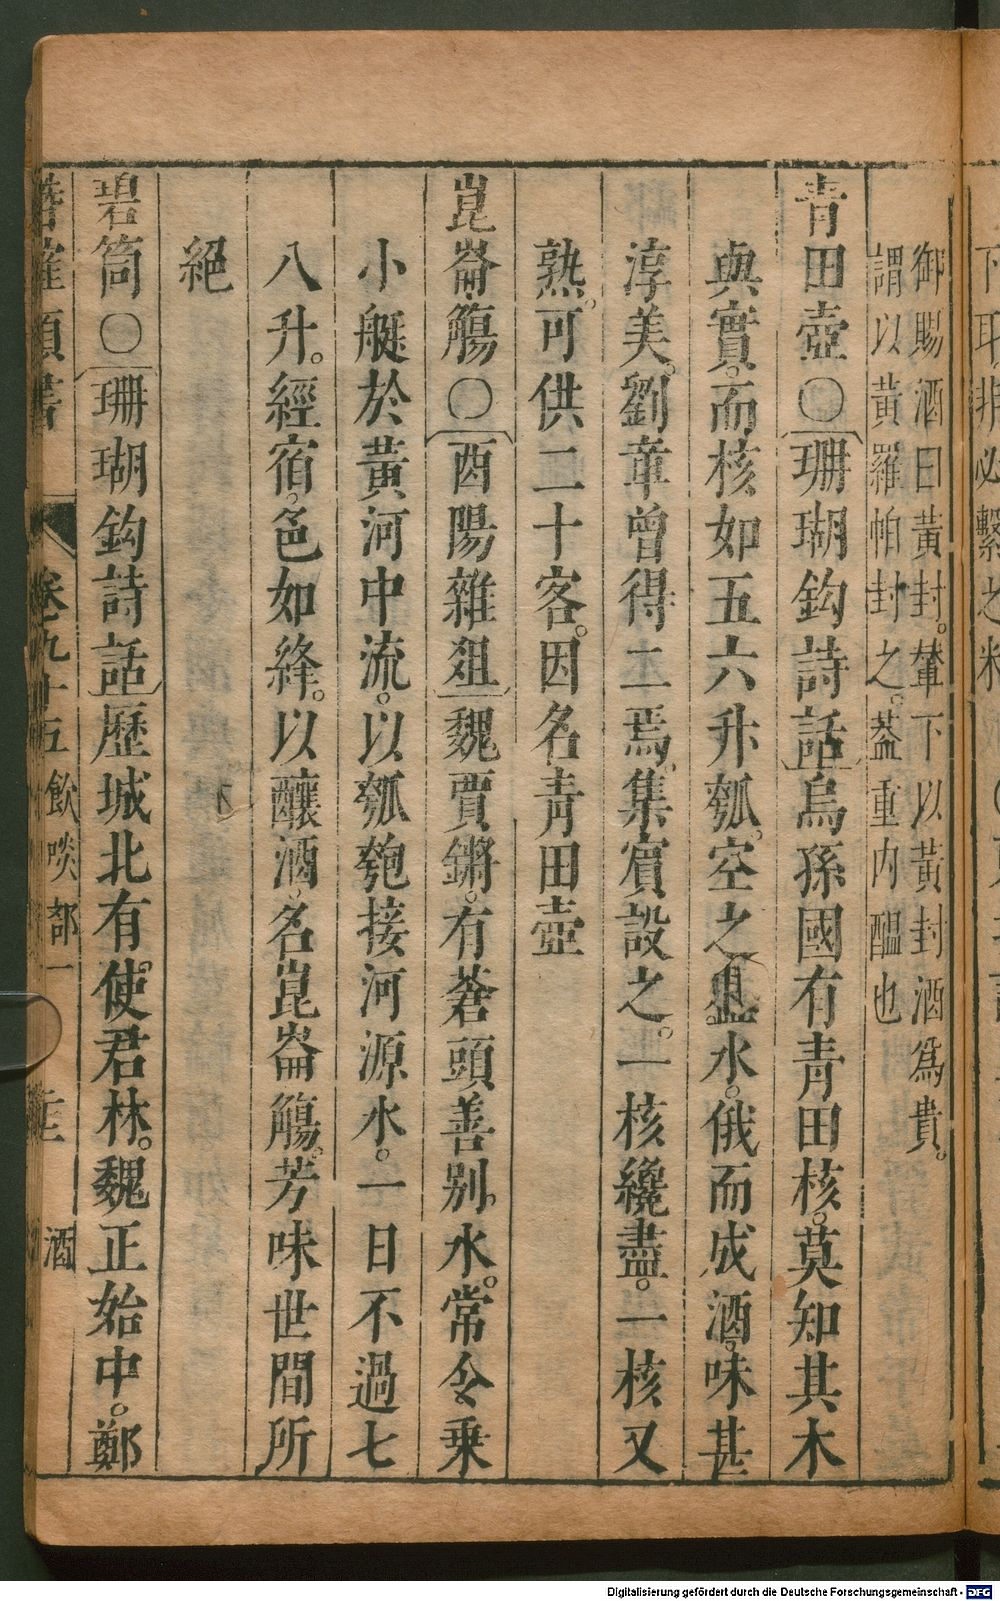 御賜酒曰黃封。輦下以黃封酒爲貴。
謂以黃羅帕封之。葢重內醞也
青田壺〇珊瑚鈎詩話烏孫國有青田核。莫知其木
與實。而核如五六升瓠。空之盛水。俄而成酒。味甚
淳美。劉章曾得二焉。集賓設之。一核纔盡。一核又
熟。可供二十客。因名青田壺
崑崙觴〇酉陽雜俎魏賈鏘。有蒼頭善别。水。常令乘
小艇於黃河中流。以瓠匏接河源水。一日不過七
八升。經宿。色如絳。以釀酒。名崑崙觴。芳味世間所
絕
碧筒〇珊瑚鈎詩話歷城北有使君林。魏正始中。鄭
卷九十五 飲啖部一 酒
Digitalisierung gefördert durch die Deutsche Forschungsgemeinschaft - DFG